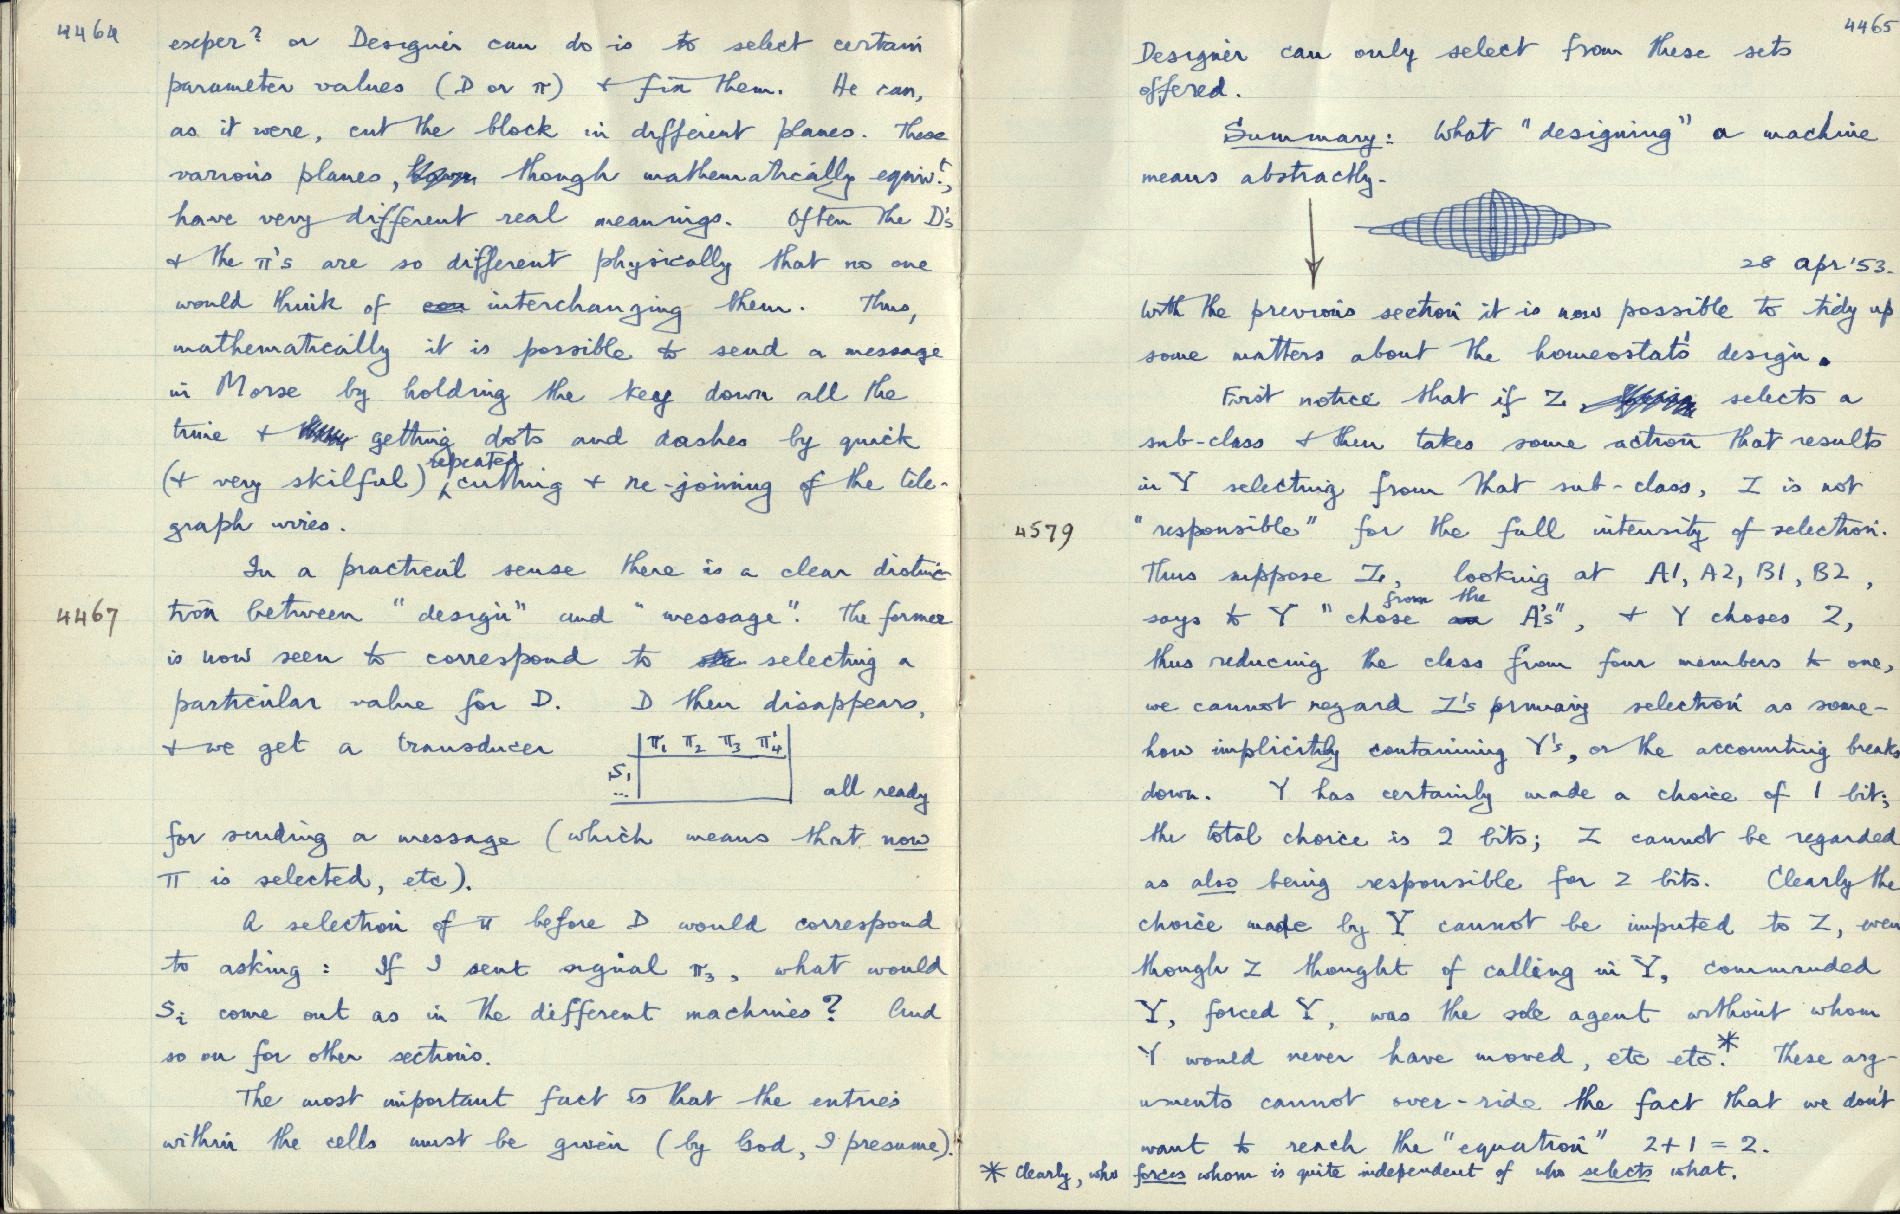 4464
exper? or Designer can do is to select certain
parameter values (D or π) + fix them. He can,
as it were, cut the block in different planes. These
various planes, though mathematically equivt,
have very different real meanings. Often the D's
+ the π's are so different physically that no one
would think of interchanging them. Thus,
mathematically it is possible to send a message
in Morse by holding the key down all the
time + getting dots and dashes by quick
(+ very skilful) repeated cutting + re-joining of the tele-
graph wires.
In a practical sense there is a clear distinc-
4467 tion between "design" and "message". The former
is now seen to correspond to selecting a
particular value for D. D then disappears,
+ we get a transducer
π1 π2 π3 π4
S1
...
all ready
for sending a message (which means that now
π is selected, etc).
A selection of π before D would correspond
to asking: If I sent signal π3, what would
Si come out as in the different machines? And
so on for other sections.
The most important fact is that the entries
within the cells must be given (by God, I presume).
4465
Designer can only select from these sets
offered.
Summary: What "designing" a machine
means abstractly.
28 Apr '53.
With the previous section it is now possible to tidy up
some matters about the homeostat's design.
First notice that if Z selects a
sub-class + then takes some action that results
in Y selecting from that sub-class, Z is not
4579 "responsible" for the full intensity of selection.
Thus suppose Z, looking at A1, A2, B1, B2,
says to Y "chose from the A's", + Y choses 2,
thus reducing the class from four members to one,
we cannot regard Z's primary selection as some-
how implicitly containing Y's, or the accounting breaks
down. Y has certainly made a choice of 1 bit;
the total choice is 2 bits; Z cannot be regarded
as also being responsible for 2 bits. Clearly the
choice made by Y cannot be imputed to Z, even
though Z thought of calling in Y, commanded
Y, forced Y, was the sole agent without whom
Y would never have moved, etc etc.* These arg-
uments cannot over-ride the fact that we don't
want to reach the "equation" 2+1 = 2.
* Clearly, who forces whom is quite independent of who selects what.